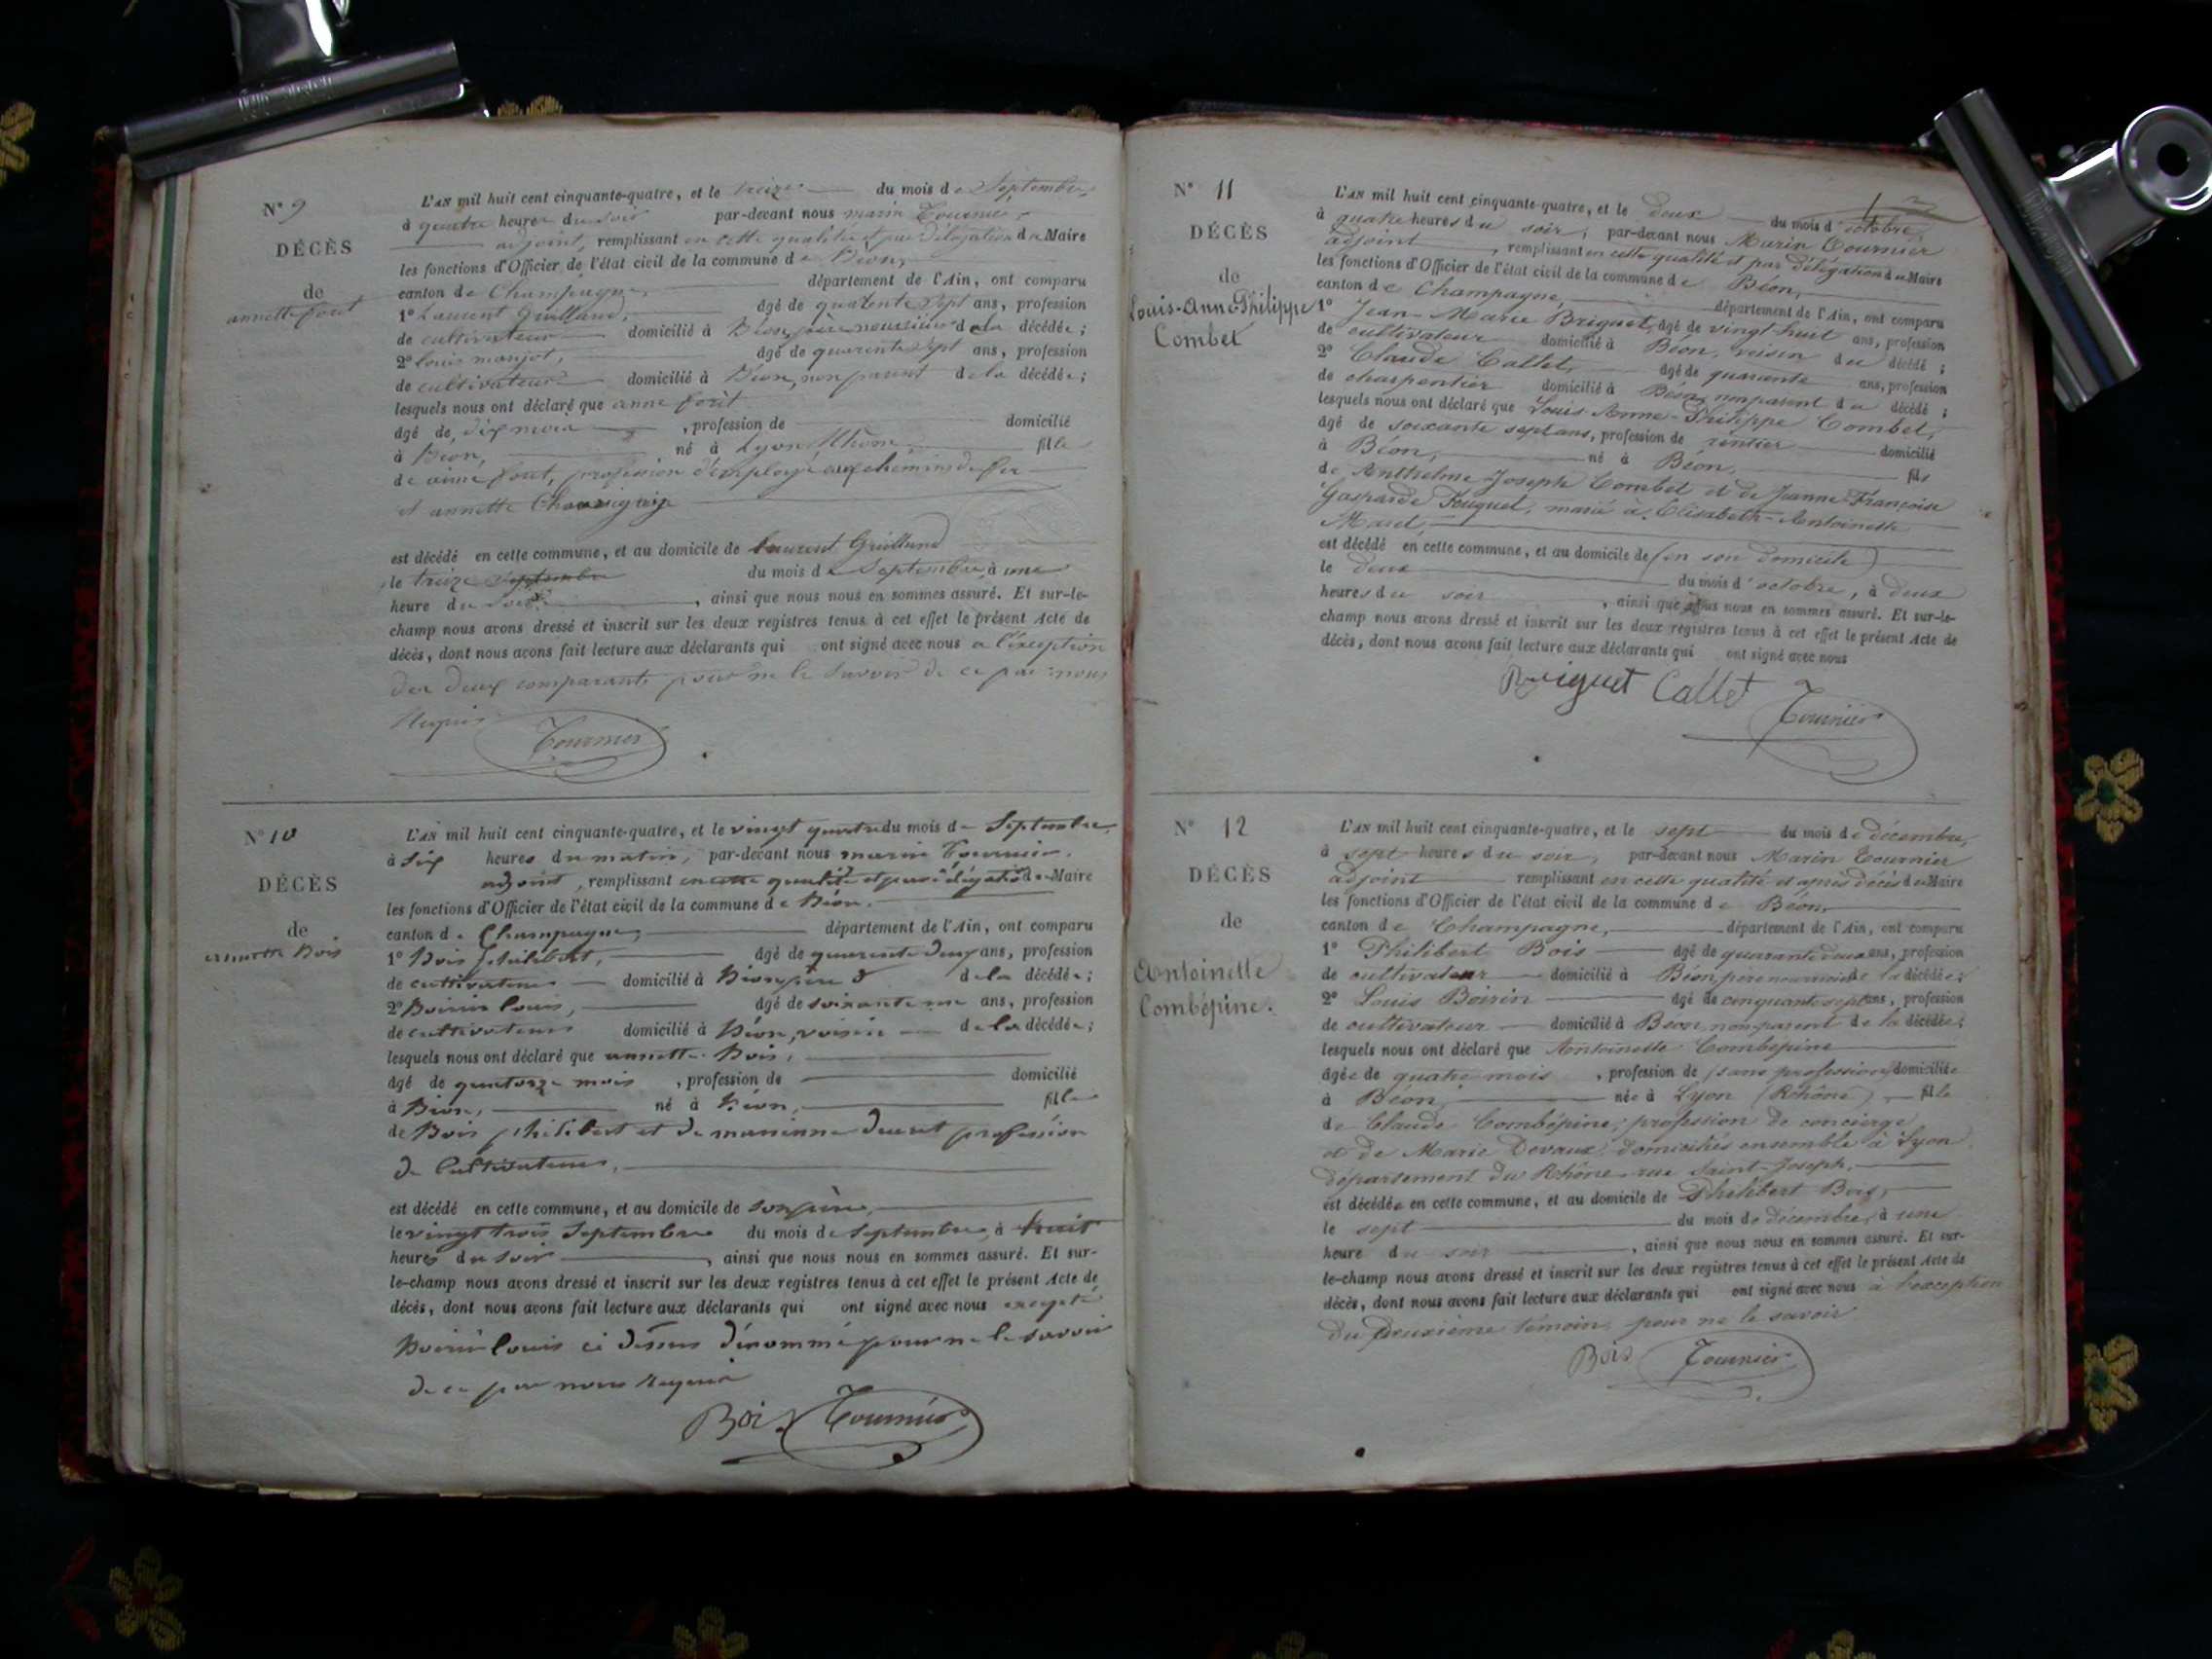 N° 9
DÉCÈS
de
annette fout
L'AN mil huit cent cinquante-quatre, et le treize du mois de Septembre,
à quatre heures du soir par-devant nous marin Tournier
adjoint, remplissant en cette qualité et par délégation du Maire
les fonctions d'Officier de l'état civil de la commune de Béon,
canton de Champagne, département de l'Ain, ont comparu
1° Laurent Guilland, âgé de quarente sept ans, profession
de cultivateur domicilié à Béon, père nourricier de la décédée;
2° louis monjot, âgé de quarente sept ans, profession
de cultivateur domicilié à Béon, non parent de la décédée;
lesquels nous ont déclaré que anne
âgé de dix mois, profession de domicilié
à Béon, né à Lyon Rhone fille
de profession d'employé aux chemins de fer
et annette
est décédé en cette commune, et au domicile de Laurent Guilland
le treize Septembre du mois de Septembre, à une
heure du soir, ainsi que nous nous en sommes assuré. Et sur-le-
champ nous avons dressé et inscrit sur les deux registres tenus à cet effet le présent Acte de
décès, dont nous avons fait lecture aux déclarants qui ont signé avec nous a l'éxception
des deux comparants pour ne le savoir de ce par nous
Requis
Tournier
N° 10
DÉCÈS
de
annette Bois
L'AN mil huit cent cinquante-quatre, et le vingt quatre du mois de Septembre,
à six heures du matin, par-devant nous marin Tournier,
adjoint, remplissant en cette qualité et par délégation du Maire
les fonctions d'Officier de l'état civil de la commune de Béon,
canton de Champagne, département de l'Ain, ont comparu
1° Bois philibert, âgé de quarente deux ans, profession
de cultivateur domicilié à Béon père de la décédée;
2° Boirin louis, âgé de soixante un ans, profession
de cultivateur domicilié à Béon, voisin de la décédée;
lesquels nous ont déclaré que annette Bois,
âgé de quatorze mois, profession de domicilié
à Béon, né à Béon, fille
de Bois philibert et de marianne profession
de Cultivateurs,
est décédé en cette commune, et au domicile de son père,
le vingt trois Septembre du mois de Septembre, à huit
heures du soir, ainsi que nous nous en sommes assuré. Et sur-
le-champ nous avons dressé et inscrit sur les deux registres tenus à cet effet le présent Acte de
décès, dont nous avons fait lecture aux déclarants qui ont signé avec nous excepté
Boirin louis ci dessus dénommé pour ne le savoir
de ce par nous Requis
Bois Tournier
N° 11
DÉCÈS
de
Louis-Anne-Philippe
Combet
L'AN mil huit cent cinquante-quatre, et le deux du mois d'octobre,
à quatre heures du soir, par-devant nous Marin Tournier
adjoint, remplissant en cette qualité et par délégation du Maire
les fonctions d'Officier de l'état civil de la commune de Béon,
canton de Champagne, département de l'Ain, ont comparu
1° Jean-Marie Briguet, âgé de vingt-huit ans, profession
de cultivateur domicilié à Béon, voisin du décédé;
2° Claude Callet, âgé de quarante ans, profession
de charpentier domicilié à Béon, non parent du décédé;
lesquels nous ont déclaré que Louis-Anne-Philippe Combet,
âgé de soixante sept ans, profession de rentier domicilié
à Béon, né à Béon, fils
de Anthelme Joseph Combet et de Jeanne-Françoise
Gasparde Fuguet, marié à Elisabeth-Antoinette
est décédé en cette commune, et au domicile de (en son domicile)
le deux du mois d'octobre, à deux
heures du soir, ainsi que nous nous en sommes assuré. Et sur-le-
champ nous avons dressé et inscrit sur les deux registres tenus à cet effet le présent Acte de
décès, dont nous avons fait lecture aux déclarants qui ont signé avec nous
Briguet Callet Tournier
N° 12
DÉCÈS
de
Antoinette
Combépine.
L'AN mil huit cent cinquante-quatre, et le sept du mois de décembre,
à sept heures du soir, par-devant nous Marin Tournier
adjoint remplissant en cette qualité et après décès du Maire
les fonctions d'Officier de l'état civil de la commune de Béon,
canton de Champagne, département de l'Ain, ont comparu
1° Philibert Bois âgé de quarante deux ans, profession
de cultivateur domicilié à Béon, père nourricier de la décédée;
2° Louis Boirin âgé de cinquante sept ans, profession
de cultivateur domicilié à Béon, non parent de la décédée;
lesquels nous ont déclaré que Antoinette Combépine
âgée de quatre mois, profession de (sans profession) domiciliée
à Béon, née à Lyon (Rhône), fille
de Claude Combépine, profession de concierge
et de Marie Devaux, domiciliés ensemble à Lyon
département du Rhône rue Saint-Joseph,
est décédée en cette commune, et au domicile de Philibert Bois,
le sept du mois de décembre, à une
heure du soir, ainsi que nous nous en sommes assuré. Et sur-
le-champ nous avons dressé et inscrit sur les deux registres tenus à cet effet le présent Acte de
décès, dont nous avons fait lecture aux déclarants qui ont signé avec nous à l'exception
du deuxième témoin, pour ne le savoir
Bois Tournier